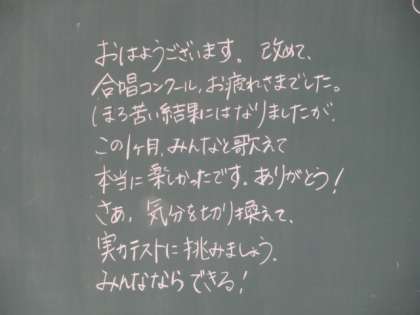 おはようございます。改めて、
合唱コンクール、お疲れさまでした。
ほろ苦い結果にはなりましたが、
この1ヶ月、みんなと歌えて
本当に楽しかったです。ありがとう！
さあ、気分を切り換えて、
実力テストに挑みましょう。
みんなならできる！